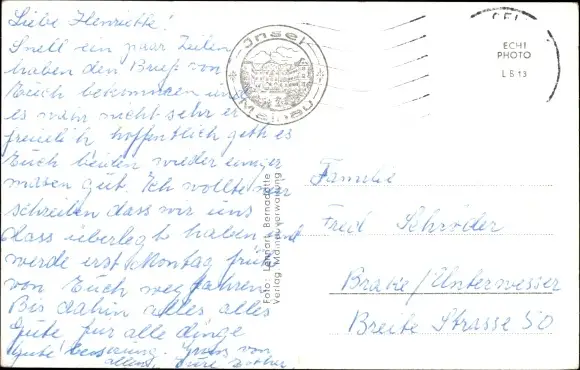 Liebe Henriette!
Snell ein paar Zeilen
haben den Brief von
Euch bekommen und
es wahr nicht sehr er
freulich hoffentlich geth es
Euch beiden wieder einiger
masen gut. Ich wollte nur
schreiben dass wir uns
dass überlegt haben und
werde erst Montag früh
von Euch weg fahren
Bis dahin alles alles
Gute für alle dinge
Gute besserung. Gruss von
allen, Eure
Insel
Mainau
Foto: Lennart Bernadotte
Verlag: Mainauverwaltung
ECHT
PHOTO
L B 13
Familie
Fred Schröder
Brake/Unterweser
Breite Strasse 50